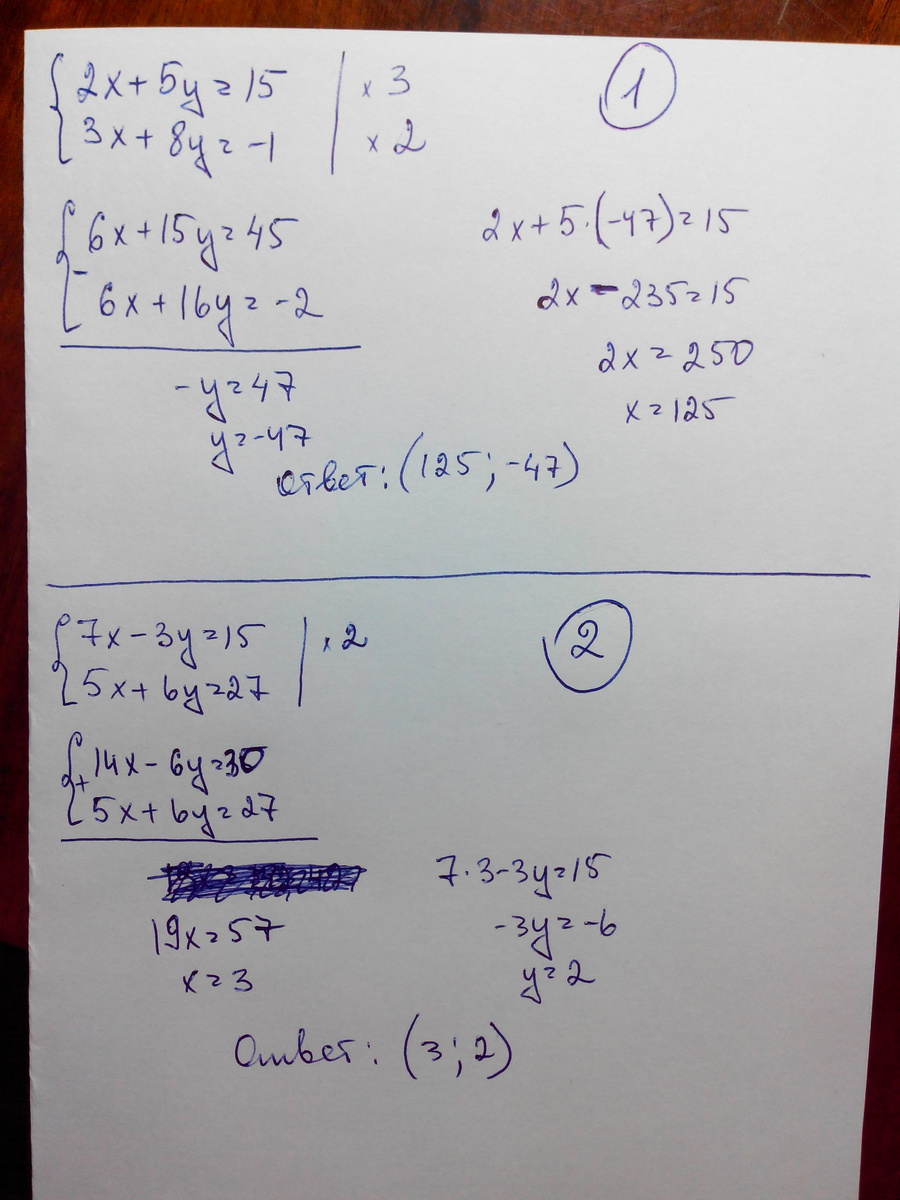 1
2x+5y=15 | ×3
3x+8y=-1 | ×2
6x+15y=45
-
6x+16y=-2
-y=47
y=-47
2x+5·(-47)=15
2x-235=15
2x=250
x=125
Ответ: (125; -47)
2
7x-3y=15 | ×2
5x+6y=27
14x-6y=30
+
5x+6y=27
19x=57
x=3
7·3-3y=15
-3y=-6
y=2
Ответ: (3; 2)